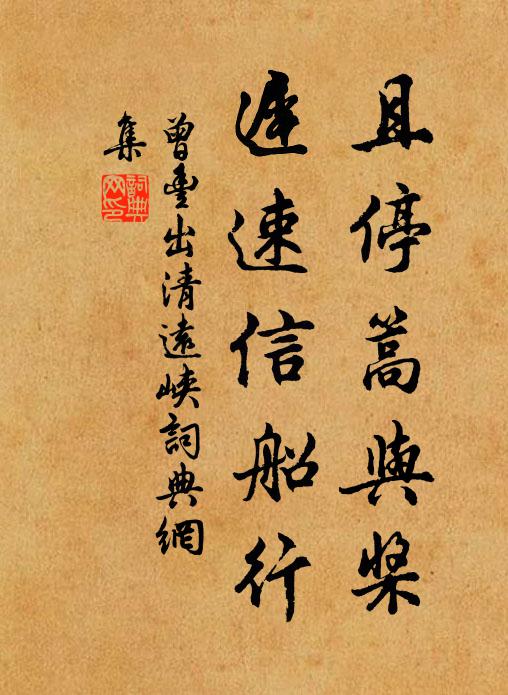 且停篙與槳
遲速信船行
曾豐出清遠峽詞典網
集
詞典
網印